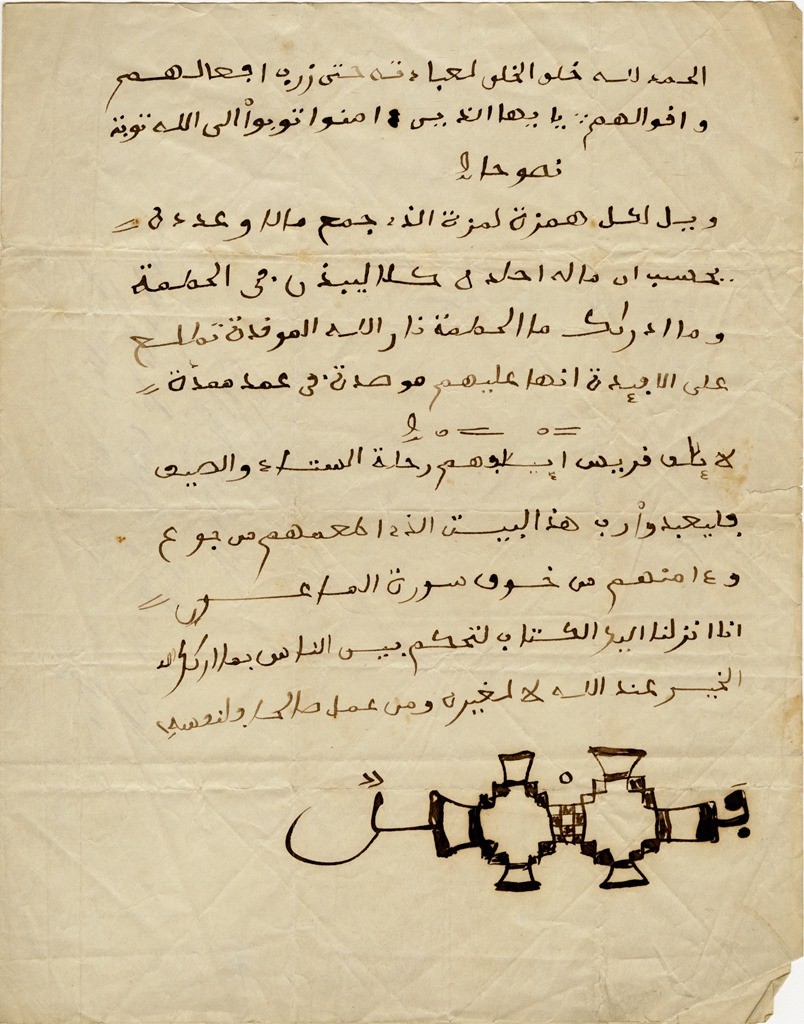 الحمد لله خلق الخلق لعبادته حتى زين افعالهم
واقوالهم يا يها الذين ءامنوا توبوا الى الله توبة
نصوحا
ويل لكل همزة لمزة الذے جمع مالا وعدده
يحسب ان ماله اخلده كلا لينبذن في الحطمة
وما ادريك ما الحطمة نار الله الموقدة تطلع
على الافيدة انها عليهم موصدة في عمد ممدة
لا يلف قريش ايلفهم رحلة الشتاء والصيف
فليعبدوا رب هذا البيت الذے اطعمهم من جوع
وءامنهم من خوف سورة الماعون
انا انزلنا اليك الكتاب لتحكم بين الناس بما اريك الله
الخير عند الله لا لغيره ومن عمل صالحا فلنفسه